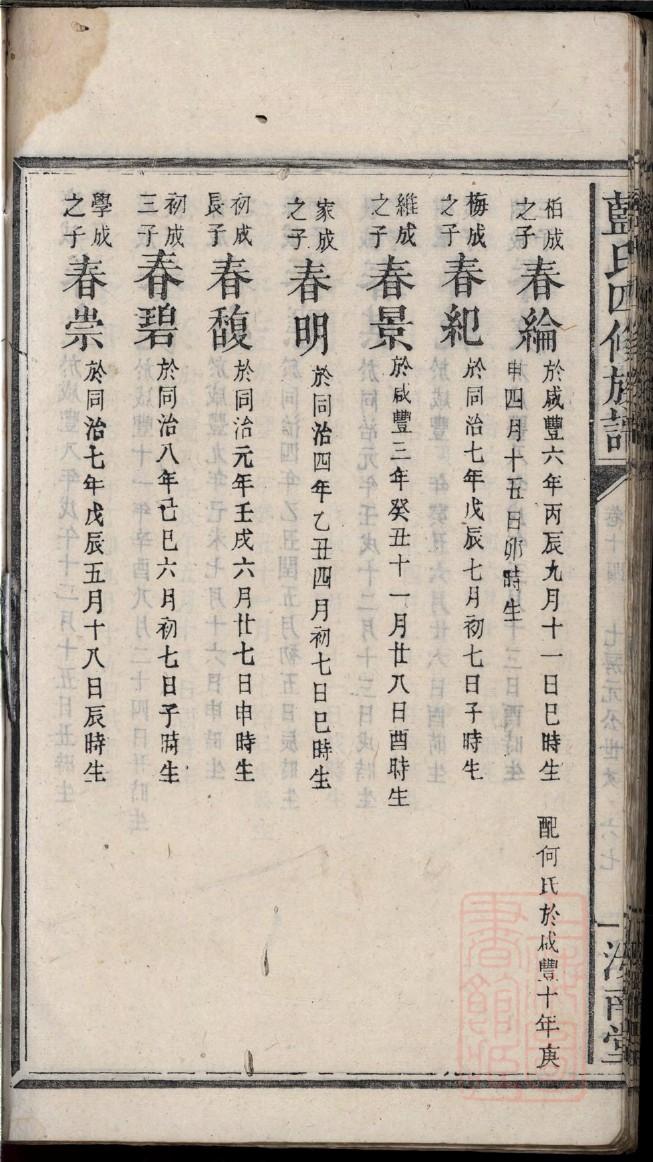 藍氏四修族譜
卷十四
七房元公世次
六七
汝南堂
柏成
之子
春綸
於咸豐六年丙辰九月十一日巳時生 配何氏於咸豐十年庚
申四月十五日卯時生
梅成
之子
春紀
於同治七年戊辰七月初七日子時生
維成
之子
春景
於咸豐三年癸丑十一月廿八日酉時生
家成
之子
春明
於同治四年乙丑四月初七日巳時生
初成
長子
春馥
於同治元年壬戌六月廿七日申時生
初成
三子
春碧
於同治八年己巳六月初七日子時生
學成
之子
春崇
於同治七年戊辰五月十八日辰時生